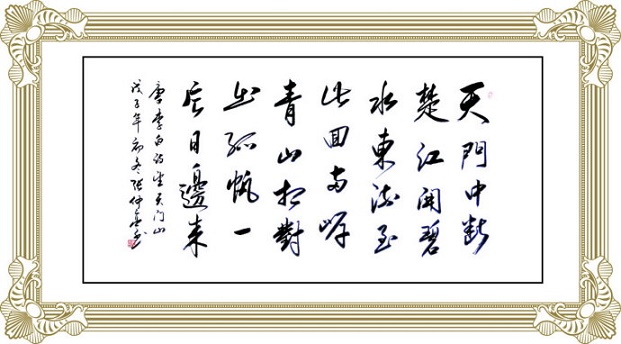 天門中斷
楚江開碧
水東流至
此回兩岸
青山相對
出孤帆一
片日邊來
唐李白詩望天门山
戊子年初冬張仲书